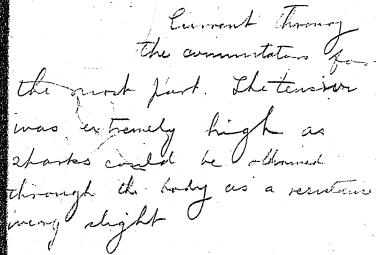 Current through
the commutators for
the most part. The tension
was extremely high as
sparks could be obtained
through the body as a resistance
very slight